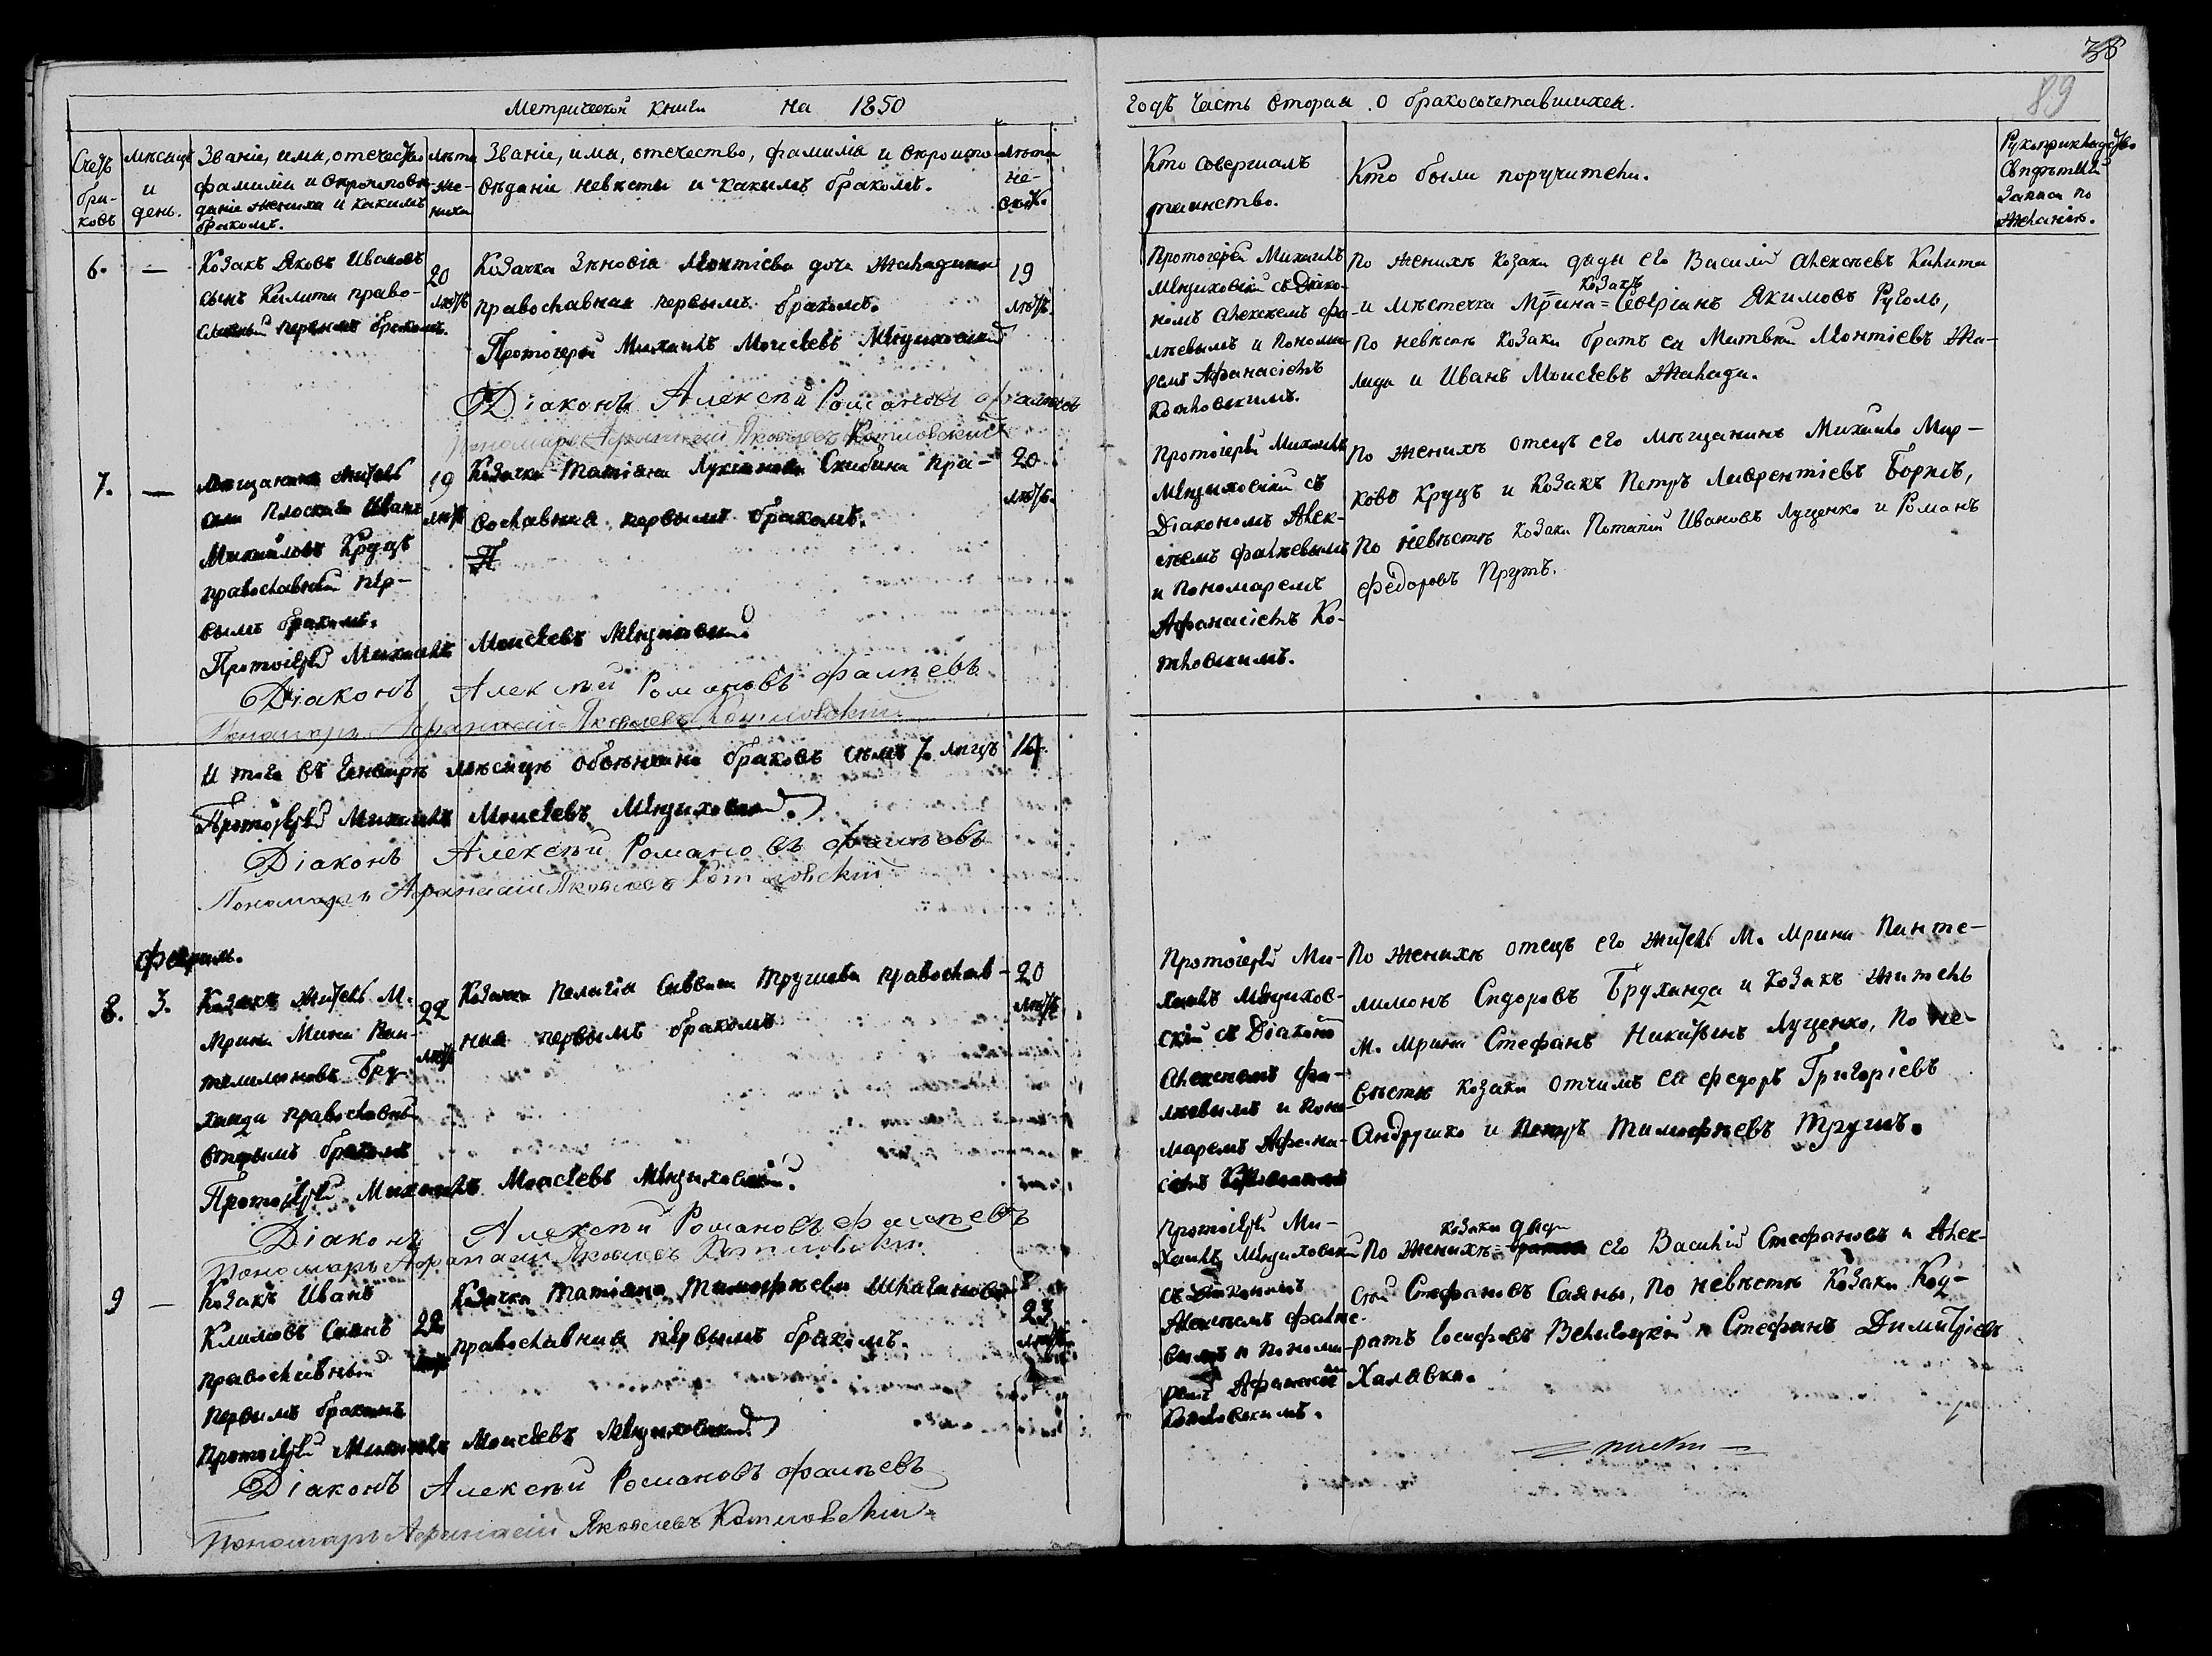 38
89
Метрической книги на 1850
годъ часть вторая о бракосочетавшихся.
Счетъ браковъ
мѣсяцъ и день.
Званіе, имя, отечество
фамилія и вѣроисповѣ-
даніе жениха и какимъ
бракомъ.
Лѣта жениха
Званіе, имя, отечество, фамилія и вѣроиспо-
вѣданіе невѣсты и какимъ бракомъ.
Лѣта невѣст.
Кто совершалъ
таинство.
Кто были поручители.
Рукоприкладство
Свидѣтелей
записи по
желанію.
6.
—
Козакъ Яковъ Ивановъ
сынъ Калита право-
славный первымъ бракомъ.
20
лѣтъ
Козачка Зѣновія Монтіева дочь Жаладина
православная первымъ бракомъ.
19
лѣтъ.
Протоіерей Михаилъ Моисеевъ Мендиковскій
Діаконъ Алексѣй Романовъ Фалѣевъ
Пономарь Афанасій Яковлевъ Котловскій
Протоіерей Михаилъ
Мендиковскій съ Діако-
номъ Алексѣемъ Фа-
лѣевымъ и Понома-
ремъ Афанасіемъ
Котловскимъ.
По женихѣ козаки дядя его Василій Алексѣевъ Калита
и мѣстечка Мрина козакъ Севѣріанъ Якимовъ Руголь,
По невѣстѣ козаки братъ ея Матвѣй Монтіевъ Жа-
лада и Иванъ Моисеевъ Жалада.
7.
—
Мещанинъ житель
села Плоскаго Иванъ
Михайловъ Круцъ
православный пер-
вымъ бракомъ.
19
лѣтъ
Козачка Татіана Лукіанова Скибина пра-
вославная первымъ бракомъ.
20
лѣтъ.
Протоіерей Михаилъ Моисеевъ Мендиковскій
Діаконъ Алексѣй Романовъ Фалѣевъ
Пономарь Афанасій Яковлевъ Котловскій
Протоіерей Михаилъ
Мендиковскій съ
Діакономъ Алек-
сѣемъ Фалѣевымъ
и Пономаремъ
Афанасіемъ Ко-
тловскимъ.
По женихѣ отецъ его мещанинъ Михаило Мар-
ковъ Круцъ и козакъ Петръ Лаврентіевъ Боршъ,
По невѣстѣ козаки Потапій Ивановъ Луценко и Романъ
Федоровъ Прутъ.
И того въ Генварѣ мѣсяцѣ обвѣнчано браковъ семъ 7. лицъ 14.
Протоіерей Михаилъ Моисеевъ Мендиковскій
Діаконъ Алексѣй Романовъ Фалѣевъ
Пономарь Афанасій Яковлевъ Котловскій
Февраль.
8.
3.
Козакъ житель М.
Мрина Мина Пан-
телимоновъ Бру-
ханда православный
вторымъ бракомъ
22
лѣтъ
Козачка Пелагія Саввина Трушева православ-
ная первымъ бракомъ
20
лѣтъ
Протоіерей Михаилъ Моисеевъ Мендиковскій.
Діаконъ Алексѣй Романовъ Фалѣевъ
Пономарь Афанасій Яковлевъ Котловскій
Протоіерей Ми-
хаилъ Мендиков-
скій съ Діаконо
Алексѣемъ Фа-
лѣевымъ и Поно-
маремъ Афана-
сіемъ Котловскимъ
По женихѣ отецъ его житель М. Мрина Панте-
лимонъ Сидоровъ Бруханда и козакъ житель
М. Мрина Стефанъ Никитинъ Луценко, По не-
вѣстѣ козаки отчимъ ея Федоръ Григоріевъ
Андрушко и Петръ Тимофѣевъ Трушъ.
9
—
Козакъ Иванъ
Климовъ Саянъ
православный
первымъ бракомъ
22
лѣтъ
Козачка Татіана Тимофѣева
православная первымъ бракомъ.
23
лѣтъ.
Протоіерей Михаилъ Моисеевъ Мендиковскій
Діаконъ Алексѣй Романовъ Фалѣевъ
Пономарь Афанасій Яковлевъ Котловскій
Протоіерей Ми-
хаилъ Мендиковскій
съ Діакономъ
Алексѣемъ Фалѣе-
вымъ и Понома-
ремъ Афанасіемъ
Котловскимъ.
По женихѣ козаки дяди его Василій Стефановъ и Алек-
сѣй Стефановъ Саяны, По невѣстѣ козаки Код-
ратъ Іосифовъ Велигоцкій и Стефанъ Димитріевъ
Халявка.